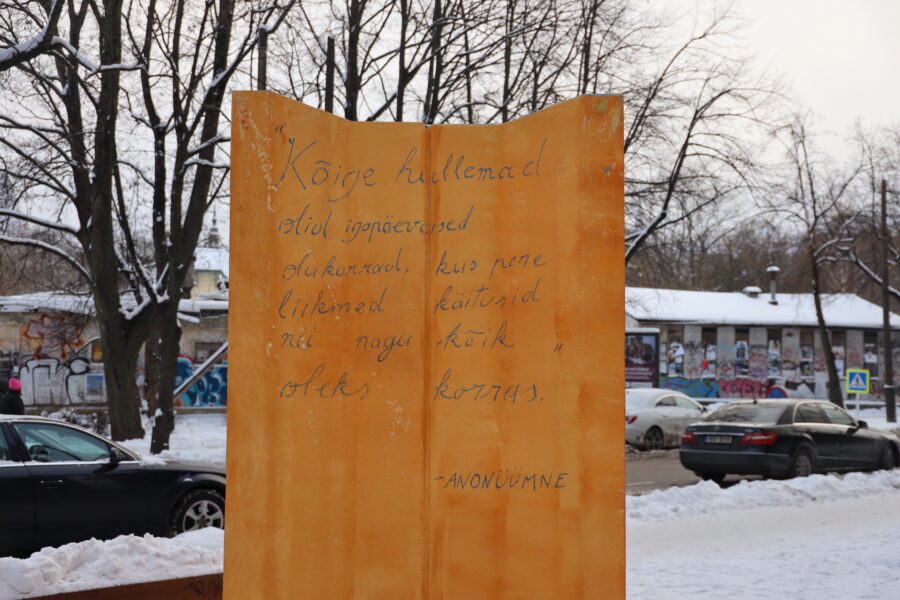 "Kõige hullemad
olid igapäevased
olukorrad, kus pere
liikmed käitusid
nii nagu kõik "
oleks korras.
-ANONÜÜMNE